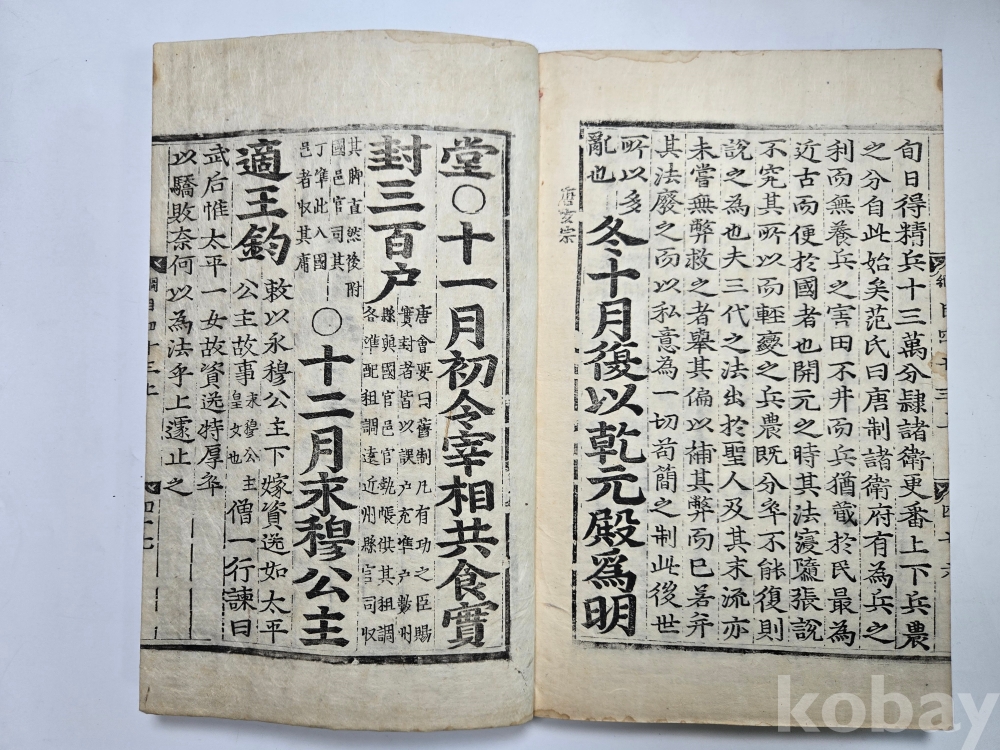 旬日得精兵十三萬分隷諸衛更番上下兵農
之分自此始矣范氏曰唐制諸衛府有為兵之
利而無養兵之害田不井而兵猶蔵於民最為
近古而便於國者也開元之時其法寖隳張說
不究其所以而輕變之兵農既分卒不能復則
說之為也夫三代之法出於聖人及其末流亦
未嘗無弊救之者舉其偏以補其弊而已若并
其法廢之而以私意為一切苟簡之制此後世
所以多
亂也
冬十月復以乾元殿爲明
唐玄宗
堂○十一月初令宰相共食實
封三百户
唐會要曰舊制凡有功之臣賜
實封者皆以課户充準户數州
縣與國官邑官執帳供其租調
各準配租調遠近州縣官司収
其脚直然後附
國邑官司其
丁準此入國
邑者収其庸
○十二月永穆公主
適王鈞
敕以永穆公主下嫁資送如太平
公主故事
永穆公主
皇女也
僧一行諫曰
武后惟太平一女故資送特厚卒
以驕敗奈何以為法乎上遽止之
綱目四十三上
四十七
kobay